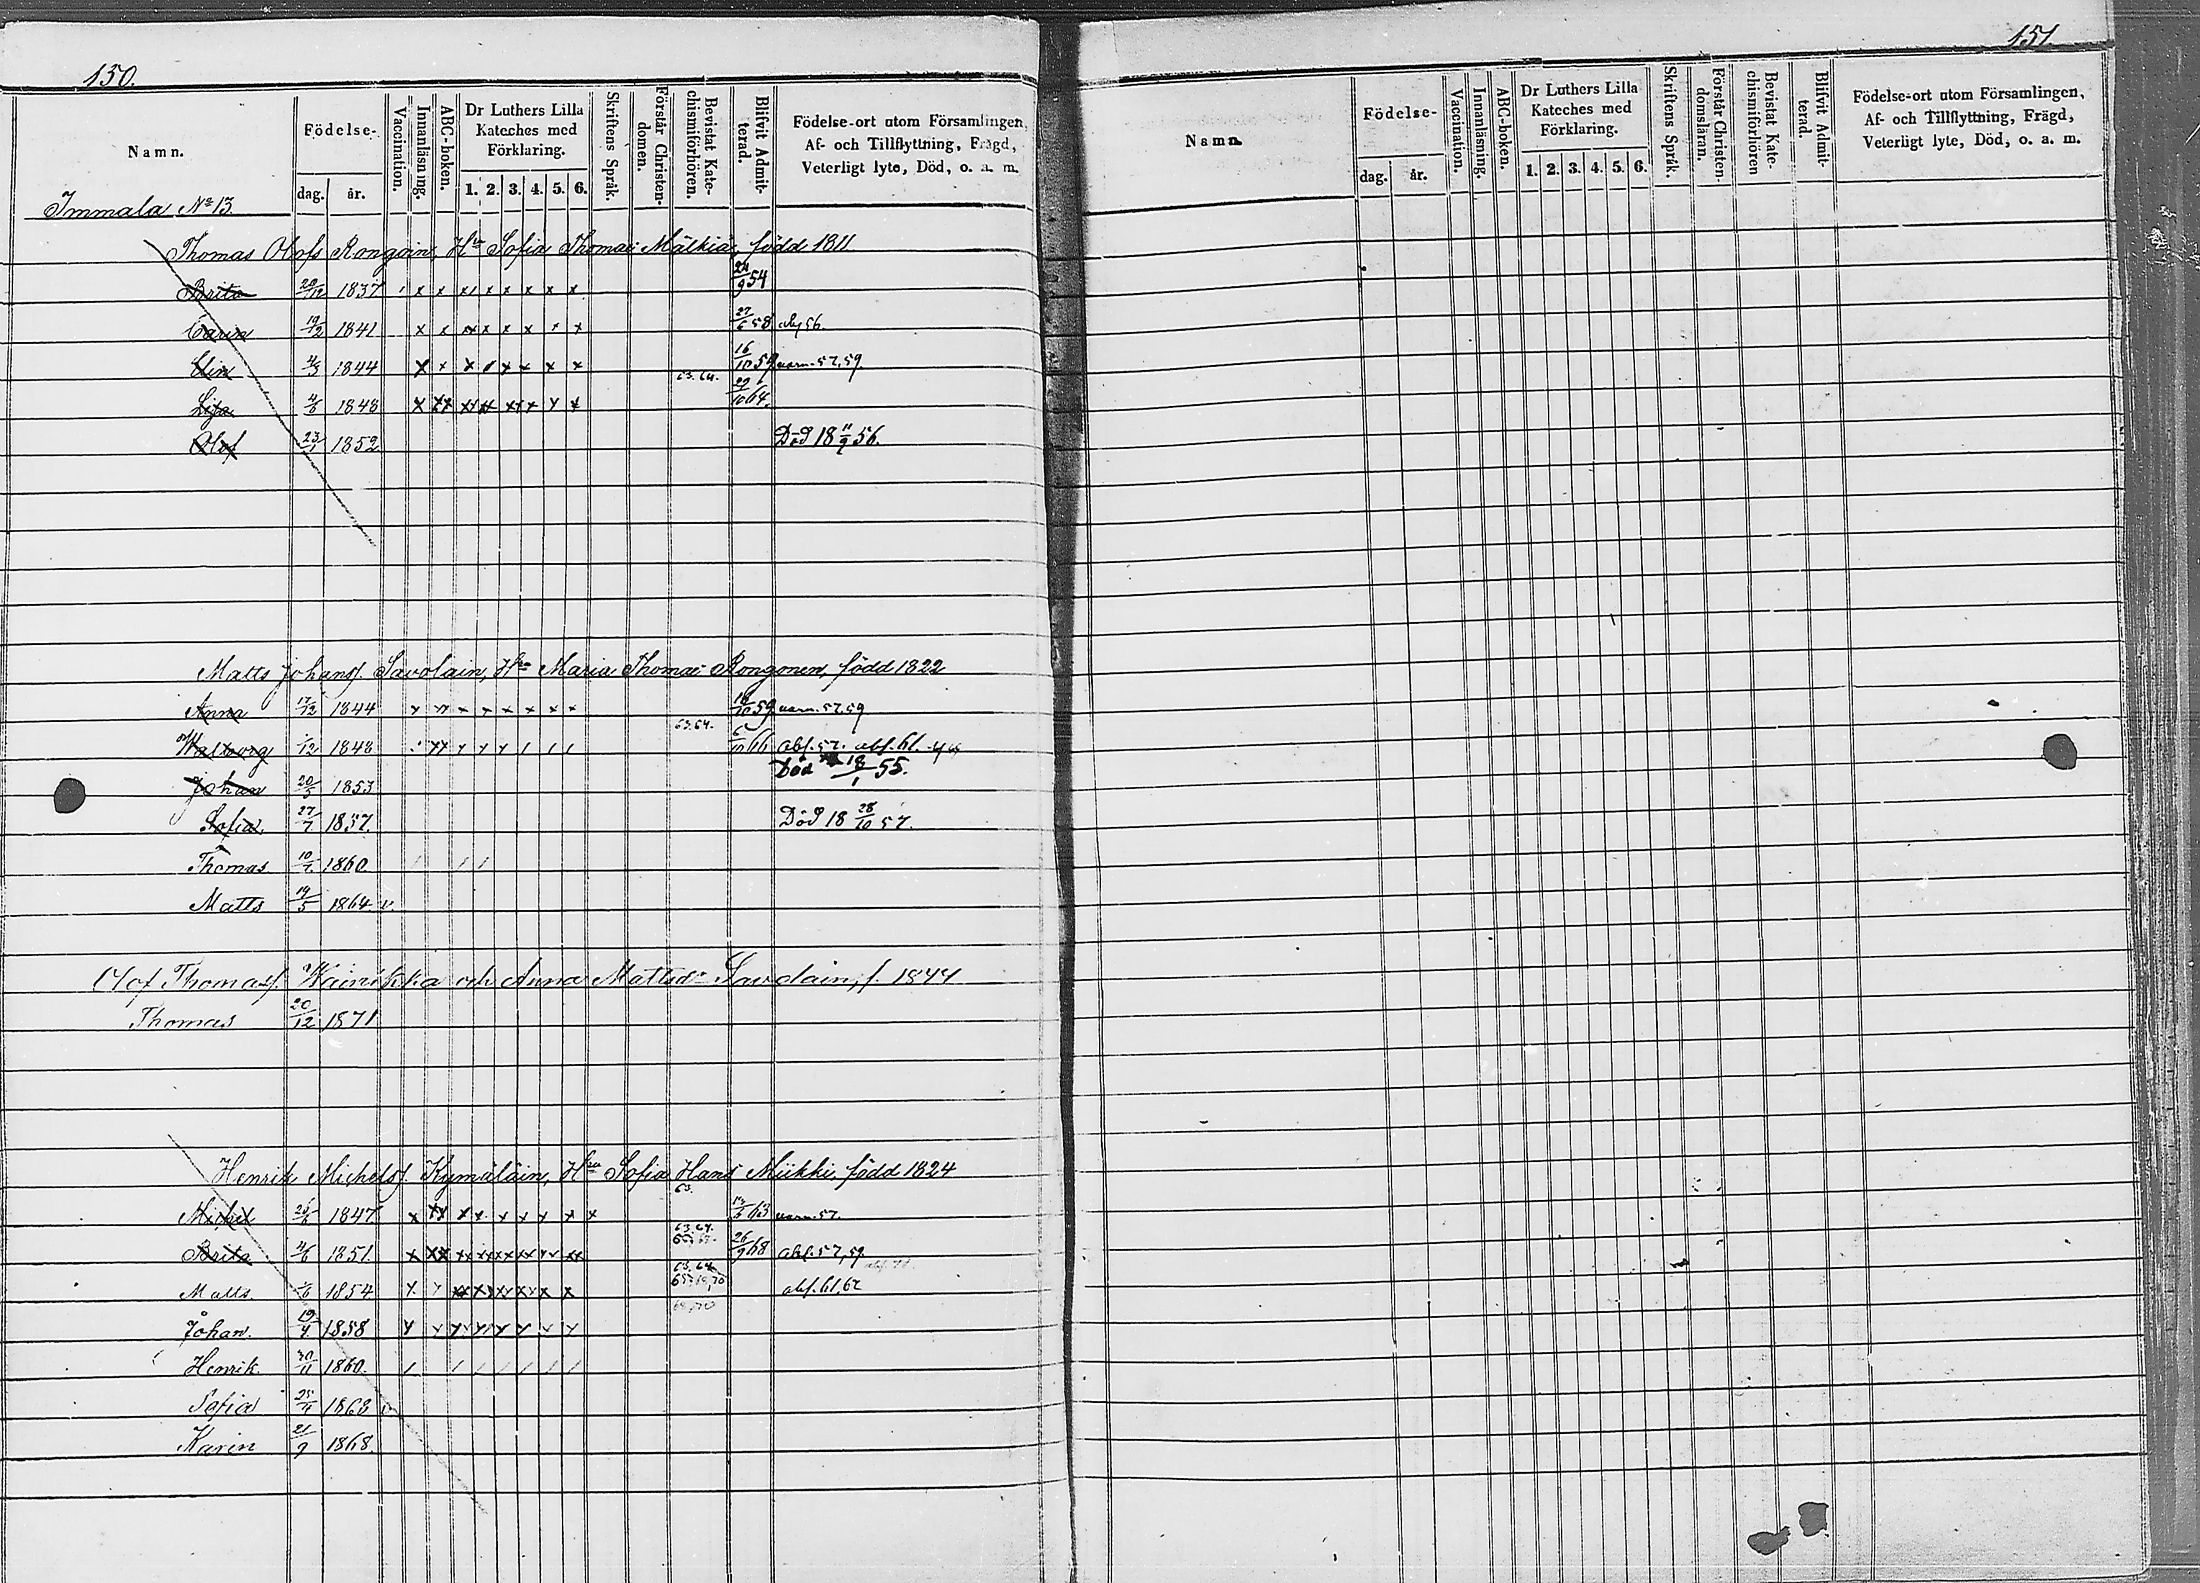 150.
Namn.
Födelse-
dag. år.
Vaccination.
Innanläsning.
ABC-boken.
Dr Luthers Lilla Kateches med Förklaring.
1. 2. 3. 4. 5. 6.
Skriftens Språk.
Förstår Christendomen.
Bevistat Katechismiförhören.
Blifvit Admitterad.
Födelse-ort utom Församlingen, Af- och Tillflyttning, Frägd, Veterligt lyte, Död, o. a. m.
Immala No 13.
Thomas Olofs Rongoin, Hu Sofia Thomae Mälkiä, född 1811
Brita 1837 x x x x x x x x 54
Carin 19/2 1841 x x x x x x x x 27/6 58 56.
Elin 4/3 1844 x x x x x x x 16/10 59 varn. 57, 59.
Lisa 4/6 1848 x xx xx xx xx x x x 63. 64. 10 64.
Olof 23/1 1852 Död 18 11/9 56.
Matts Johanss. Savolain, Hu Maria Thomae Rongonen, född 1822
Anna 17/12 1844 x x x x x x x x 16/10 59 varn. 57, 59
Walborg 12 1848 63. 64. 6/10 66 abs. 57. abs. 61.
Johan 20/5 1853 Död 18/1 55.
Sofia 27/7 1857. Död 18 28/10 57.
Thomas 10/7 1860. / / /
Matts 19/5 1864. v.
Olof Thomass. Wainikka och Anna Mattsdr Savolain, f. 1844
Thomas 20/12 1871
Henrik Michelss. Kymäläin, Hu Sofia Hans Mükki, född 1824
Michel 1847 x xx x x x x x x x 63. 63 varn. 57.
Brita 4/6 1851. x xx xx xx xx xx xx xx 63. 64. 26/9 68 abs. 57, 59.
Matts. 1854 x x xx xx xx xx x x 63. 64. abs. 61, 62
Johan. 19/4 1858 x x x x x x x x 69, 70
Henrik. 30/11 1860. / / / / / / /
Sofia 25/11 1863 v
Karin 21/9 1868.
151.
Namn.
Födelse-
dag. år.
Vaccination.
Innanläsning.
ABC-boken.
Dr Luthers Lilla Kateches med Förklaring.
1. 2. 3. 4. 5. 6.
Skriftens Språk.
Förstår Christendomsläran.
Bevistat Katechismiförhören
Blifvit Admitterad.
Födelse-ort utom Församlingen, Af- och Tillflyttning, Frägd, Veterligt lyte, Död, o. a. m.